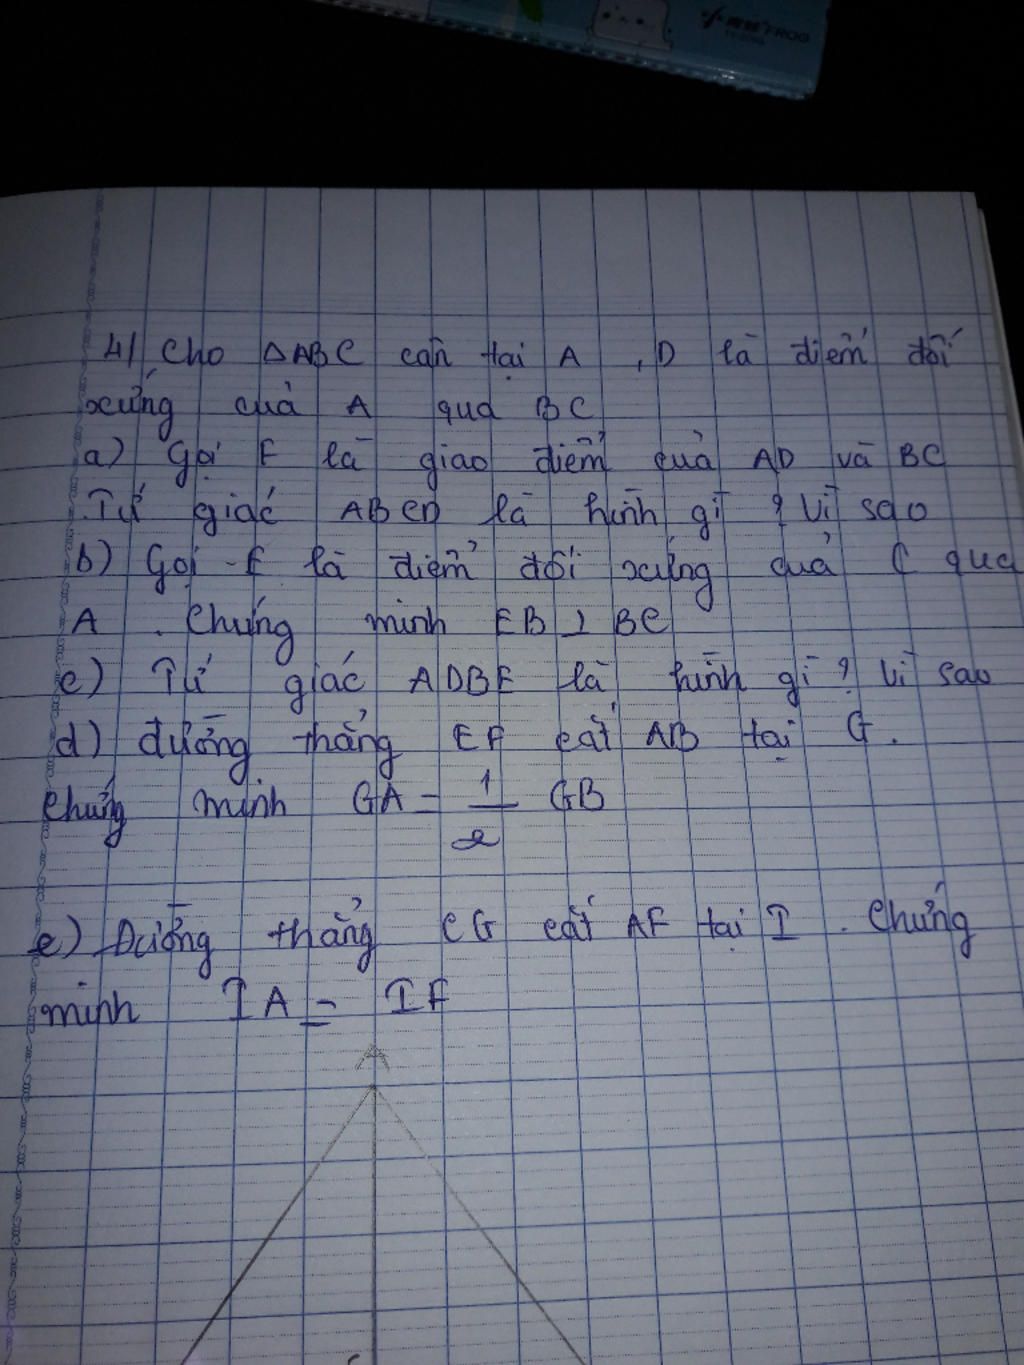 FROG
4) Cho ΔABC cân tại A , D là điểm đối
xứng của A qua BC
a) Gọi F là giao điểm của AD và BC
Tứ giác ABCD là hình gì ? Vì sao
b) Gọi E là điểm đối xứng của C qua
A . Chứng minh EB ⊥ BC
c) Tứ giác ADBE là hình gì ? Vì sao
d) đường thẳng EF cắt AB tại G .
Chứng minh GA = 1/2 GB
e) Đường thẳng CG cắt AF tại I . Chứng
minh IA = IF
A